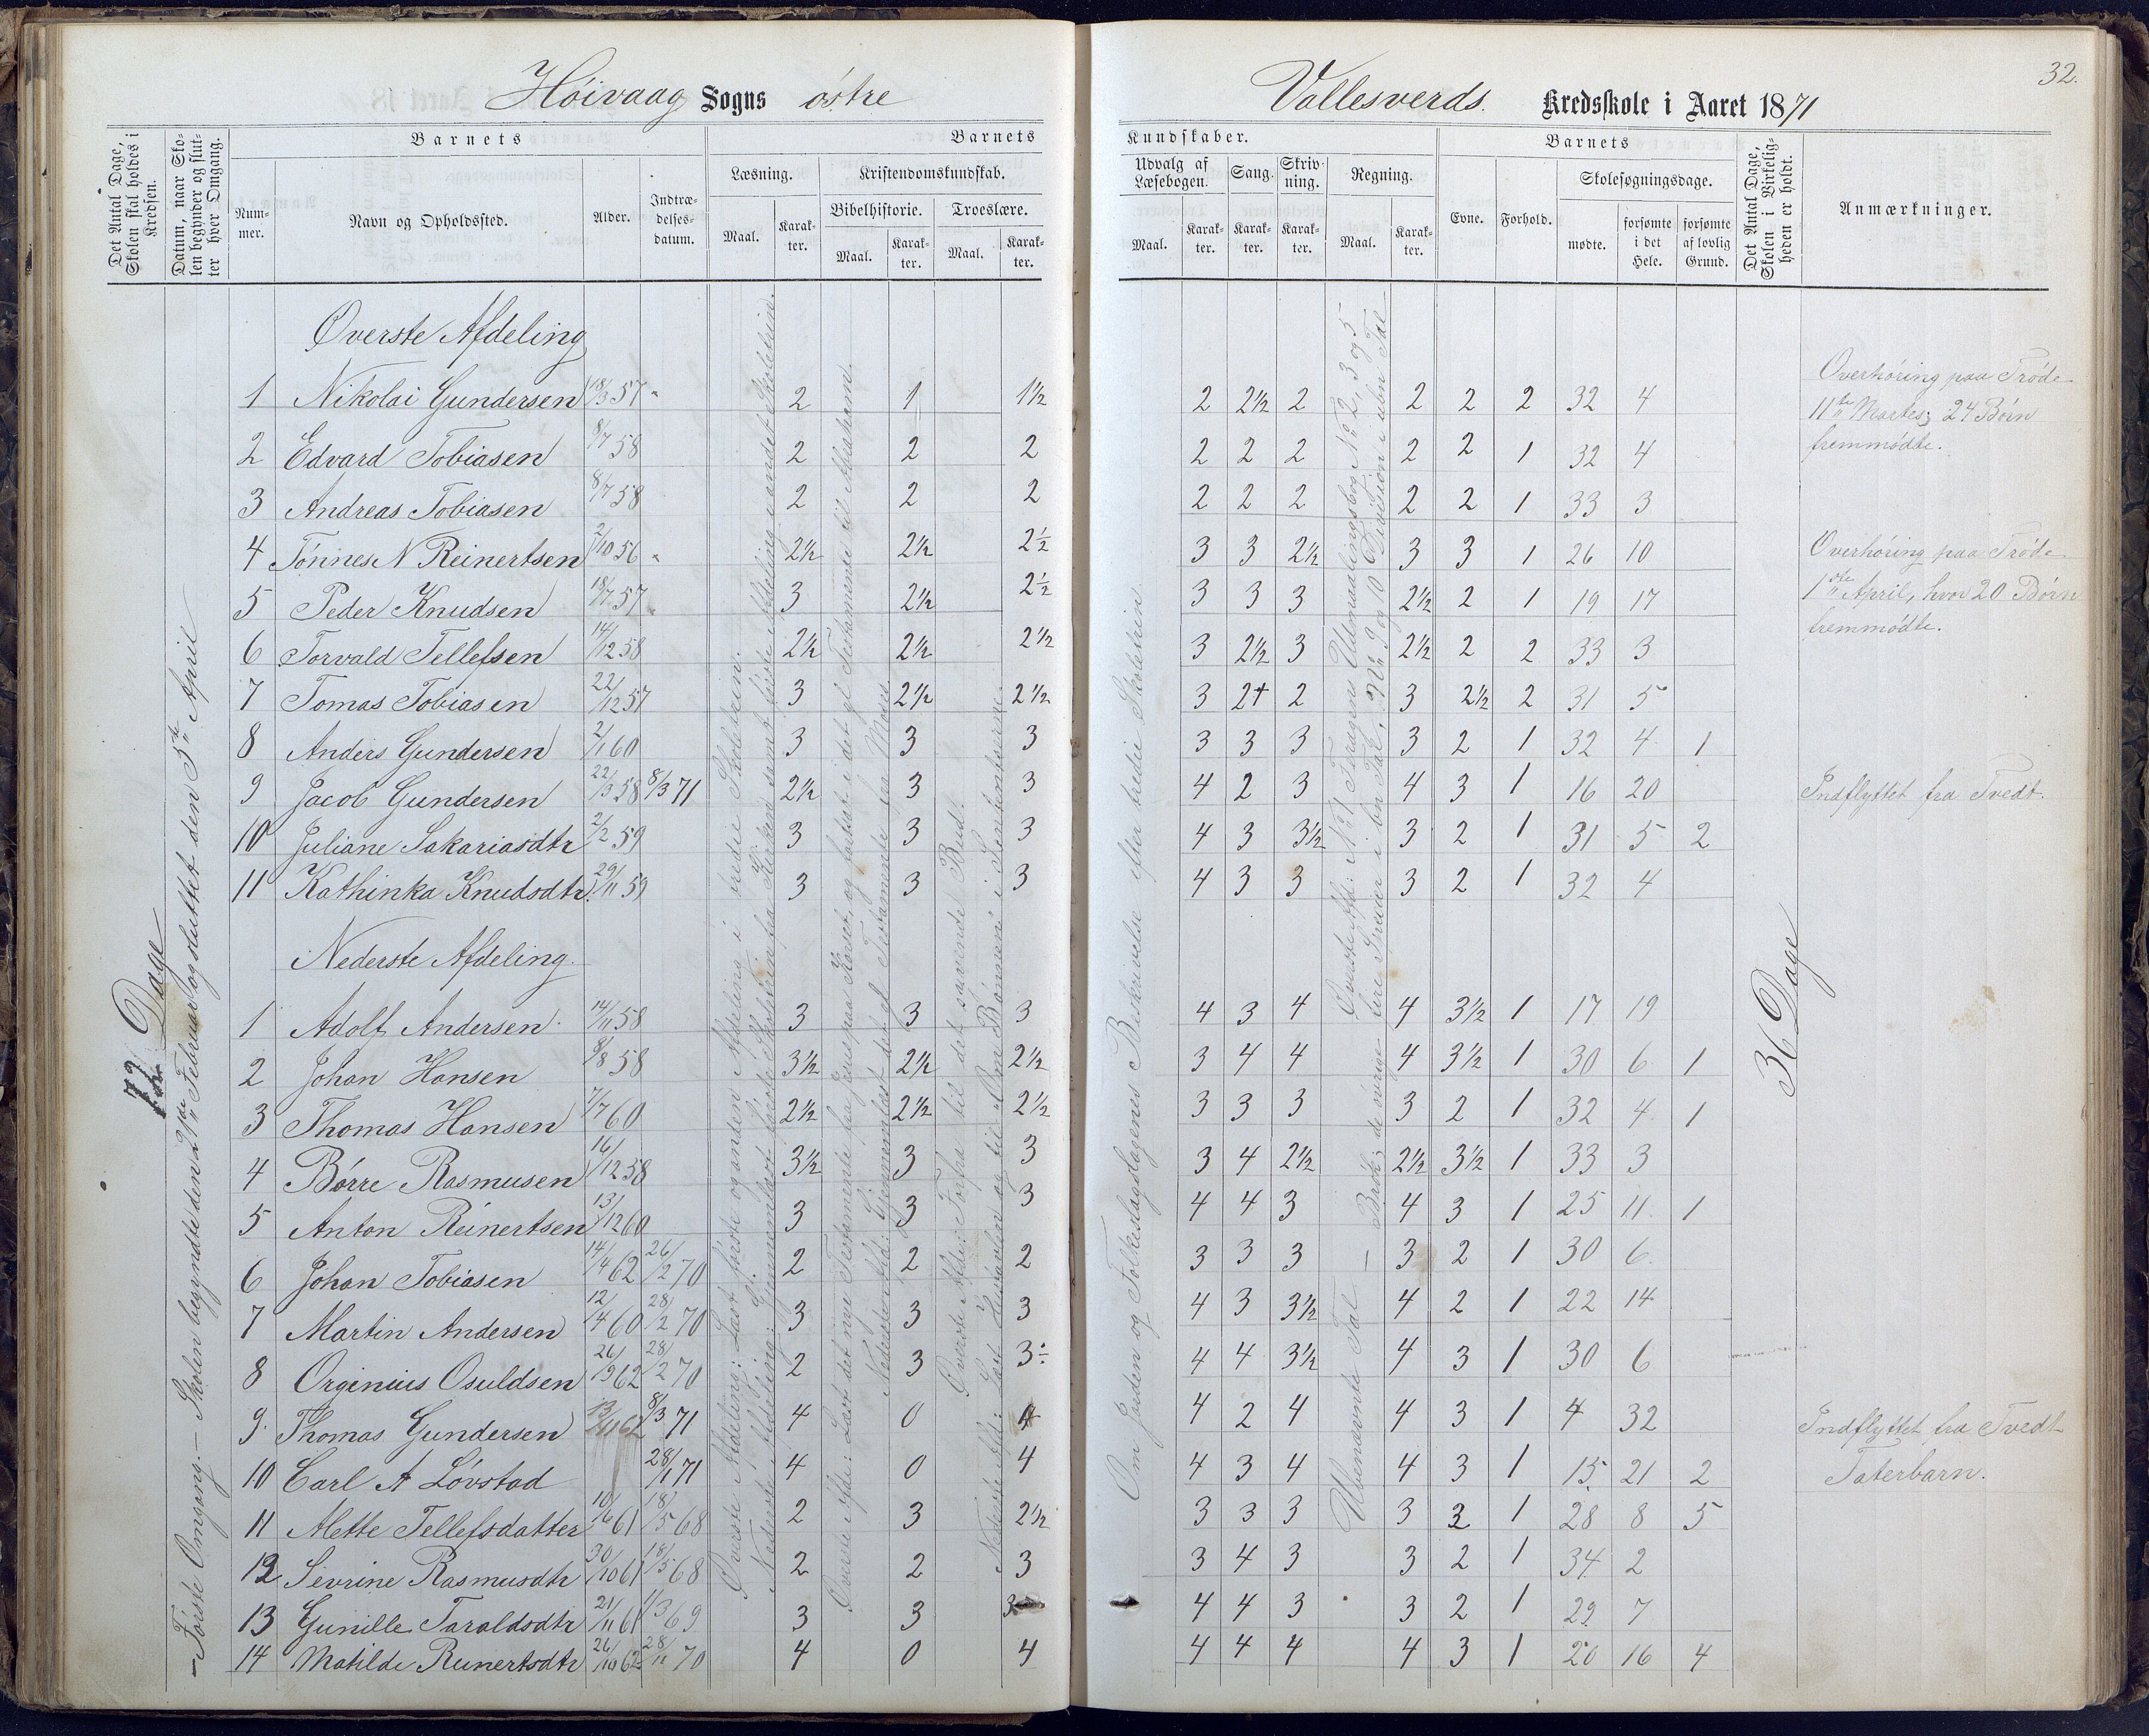 32.
Höivaag Sogns östre
Vallesverds. Kredsskole i Aaret 1871
Det Antal Dage, Skolen skal holdes i Kredsen.
Datum, naar Skolen begynder og slutter hver Omgang.
Barnets
Nummer.
Navn og Opholdssted.
Alder.
Indtrædelsesdatum.
Barnets
Læsning.
Maal.
Karakter.
Kristendomskundskab.
Bibelhistorie.
Maal.
Karakter.
Troeslære.
Maal.
Karakter.
Kundskaber.
Udvalg af Læsebogen.
Maal.
Karakter.
Sang.
Karakter.
Skrivning.
Karakter.
Regning.
Maal.
Karakter.
Barnets
Evne.
Forhold.
Skolesøgningsdage.
mødte.
forsømte i det Hele.
forsømte af lovlig Grund.
Det Antal Dage, Skolen i Virkeligheden er holdt.
Anmærkninger.
72 Dage
– Første Omgang. – Skolen begyndte den 21de Februar og sluttet den 5te April
Øverste Afdeling
1 Nikolai Gundersen 18/3 57 " 2 1 1½ 2 2½ 2 2 2 2 32 4
2 Edvard Tobiasen 8/7 58 2 2 2 2 2 2 2 2 1 32 4
3 Andreas Tobiasen 8/7 58 2 2 2 2 2 2 2 2 1 33 3
4 Tønnes N Reinertsen 2/10 56 " 2½ 2½ 2½ 3 3 2½ 3 3 1 26 10
5 Peder Knudsen 18/7 57 " 3 2½ 2½ 3 3 3 2½ 2 1 19 17
6 Torvald Tellefsen 14/12 58 2½ 2½ 2½ 3 2½ 3 2½ 2 2 33 3
7 Tomas Tobiasen 22/12 57 3 2½ 2½ 3 2+ 2 3 2½ 2 31 5
8 Anders Gundersen 2/1 60 3 3 3 3 3 3 3 2 1 32 4 1
9 Jacob Gundersen 22/3 58 8/3 71 2½ 3 3 4 2 3 4 3 1 16 20
10 Juliane Sakariasdtr 2/2 59 3 3 3 4 3 3½ 3 2 1 31 5 2
11 Kathinka Knudsdtr. 29/11 59 3 3 3 4 3 3 3 2 1 32 4
Nederste Afdeling.
1 Adolf Andersen 14/11 58 3 3 3 4 3 4 4 3½ 1 17 19
2 Johan Hansen 8/8 58 3½ 2½ 2½ 3 4 4 4 3½ 1 30 6 1
3 Thomas Hansen 7/7 60 2½ 2½ 2½ 3 3 3 3 2 1 32 4 1
4 Børre Rasmusen 16/12 58 3½ 3 3 3 4 2½ 2½ 3½ 1 33 3
5 Anton Reinertsen 13/12 60 3 3 3 4 4 3 4 3 1 25 11 1
6 Johan Tobiasen 14/4 62 26/2 70 2 2 2 3 3 3 3 2 1 30 6
7 Martin Andersen 12/4 60 28/2 70 3 3 3 4 3 3½ 4 2 1 22 14
8 Orginius Osuldsen 26/9 62 28/2 70 2 3 3÷ 4 4 3½ 4 3 1 30 6
9 Thomas Gundersen 13/11 62 8/3 71 4 0 4 4 2 4 4 3 1 4 32
10 Carl A Løvstad 28/1 71 4 0 4 4 3 4 4 3 1 15 21 2
11 Mette Tellefsdatter 10/6 61 18/5 68 2 3 2½ 3 3 3 3 3 1 28 8 5
12 Sevrine Rasmusdtr 30/10 61 18/5 68 2 2 3 3 4 3 3 2 1 34 2
13 Gunille Taraldsdtr 21/11 61 11/3 69 3 3 3 4 4 3 3 2 1 29 7
14 Matilde Reinertsdtr 26/10 62 28/11 70 4 0 4 4 4 4 4 3 1 20 16 4
Øverste Afdeling: Læst første og anden Afdeling i tredie Skoletrin.
Om Jorden og Folkeslagslagenes Beskrivelse efter tredie Skoletrin
Ubenævnte Tal – Brøk; de øvrige
36 Dage
Overhøring paa Trøde
11te Martes; 24 Børn
fremmødte.
Overhøring paa Trøde
1ste April, hvor 20 Børn
fremmødte.
Indflyttet fra Tvedt.
Indflyttet fra Tvedt
Taterbarn.